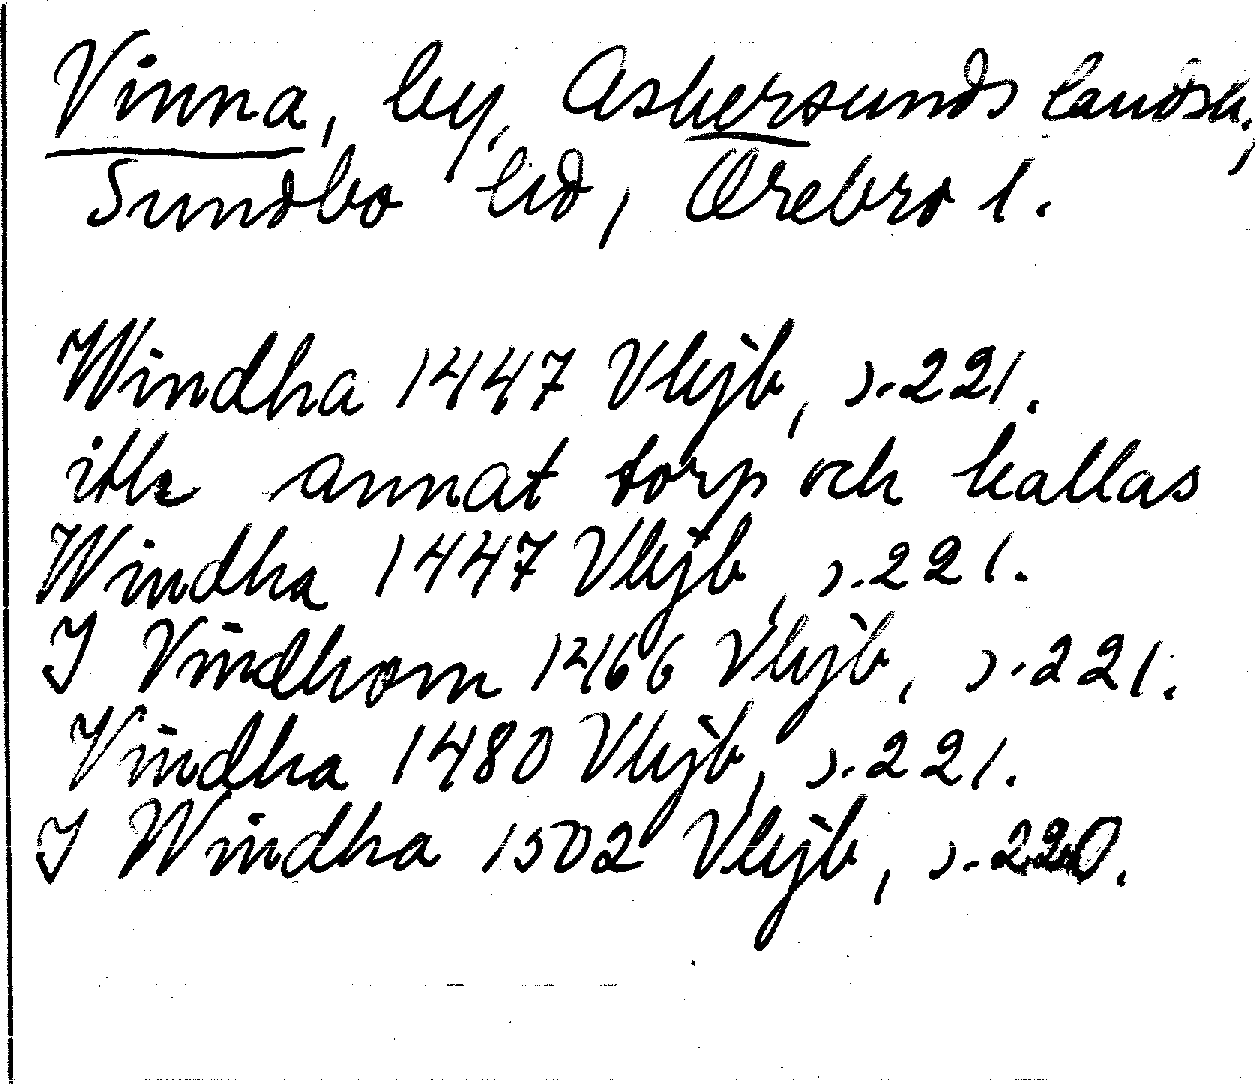 Vinna, by, Askersunds landsk,
Sundbo hd, Örebro l.
Windha 1447 Vkjb, s. 221.
itk annat torp och kallas
Windha 1447 Vkjb, s. 221.
J Vindhom 1466 Vkjb, s. 221.
Vindha 1480 Vkjb, s. 221.
J Windha 1502 Vkjb, s. 220.